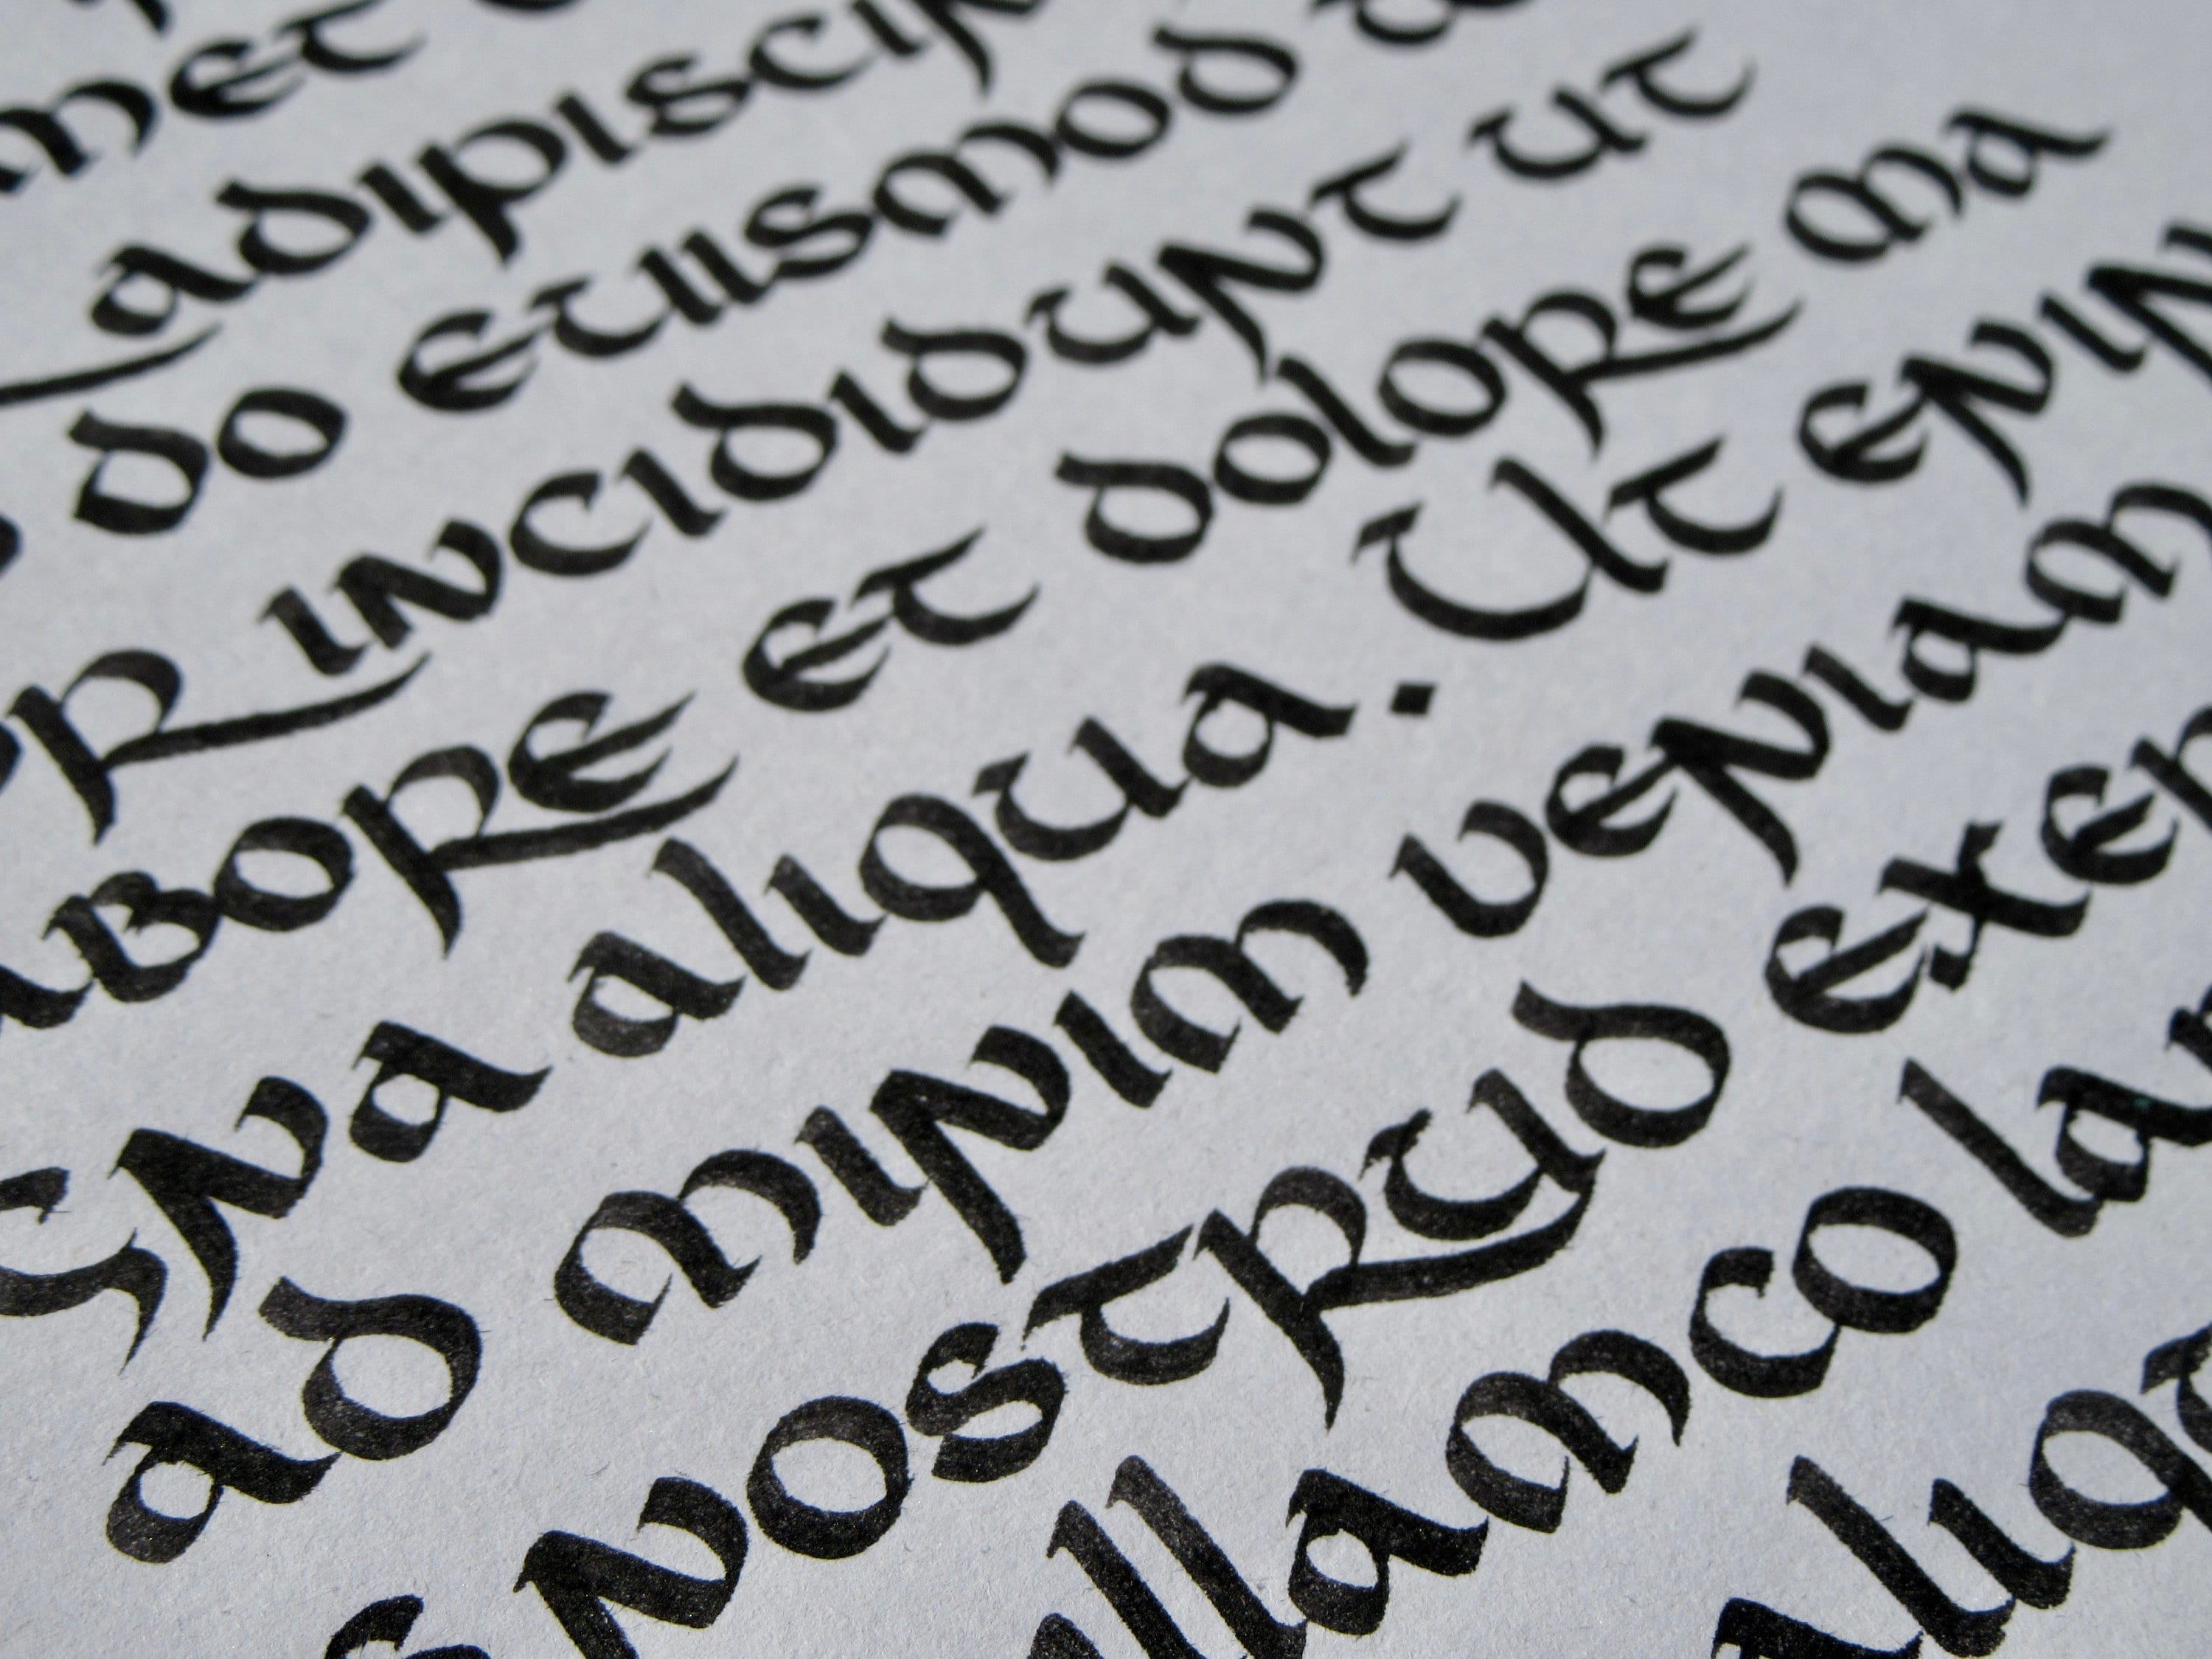 met
adipiscin
do euismod
r incididunt ut
abore et dolore ma
gna aliqua. Ut enim
ad minim veniam
s nostrud exer
ullamco la
aliq